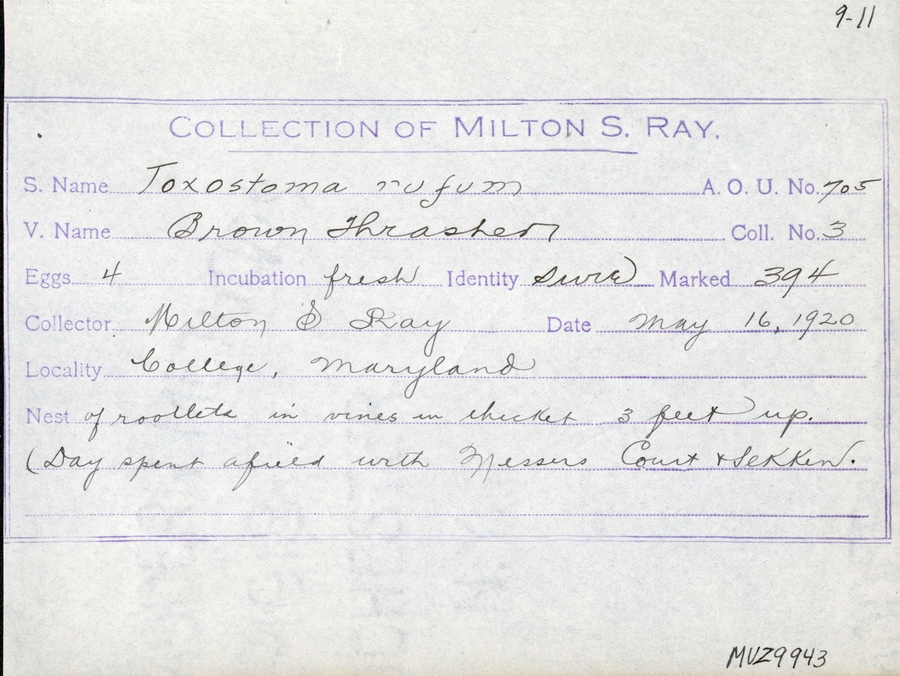 9-11
COLLECTION OF MILTON S. RAY.
S. Name Toxostoma rufum A. O. U. No. 705
V. Name Brown Thrasher Coll. No. 3
Eggs 4 Incubation fresh Identity sure Marked 394
Collector Milton S Ray Date May 16, 1920
Locality College, Maryland
Nest of rootlets in vines in thicket 3 feet up.
(Day spent afield with Messers Court &
MVZ9943